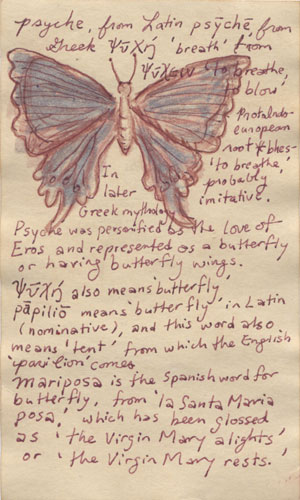 psyche, from Latin psȳchē from
Greek Ψῡχή 'breath' from
Ψῡ́χειν 'to breathe,
to blow'
ProtoIndo-
european
root *bhes-
'to breathe,'
probably
imitative.
In
later
Greek mythology
Psyche was personified as the love of
Eros and represented as a butterfly
or having butterfly wings.
Ψῡχή also means 'butterfly'
pāpiliō means 'butterfly' in Latin
(nominative), and this word also
means 'tent' from which the English
'pavilion' comes
mariposa is the Spanish word for
butterfly, from 'la Santa Maria
posa,' which has been glossed
as 'the Virgin Mary alights'
or 'the Virgin Mary rests.'